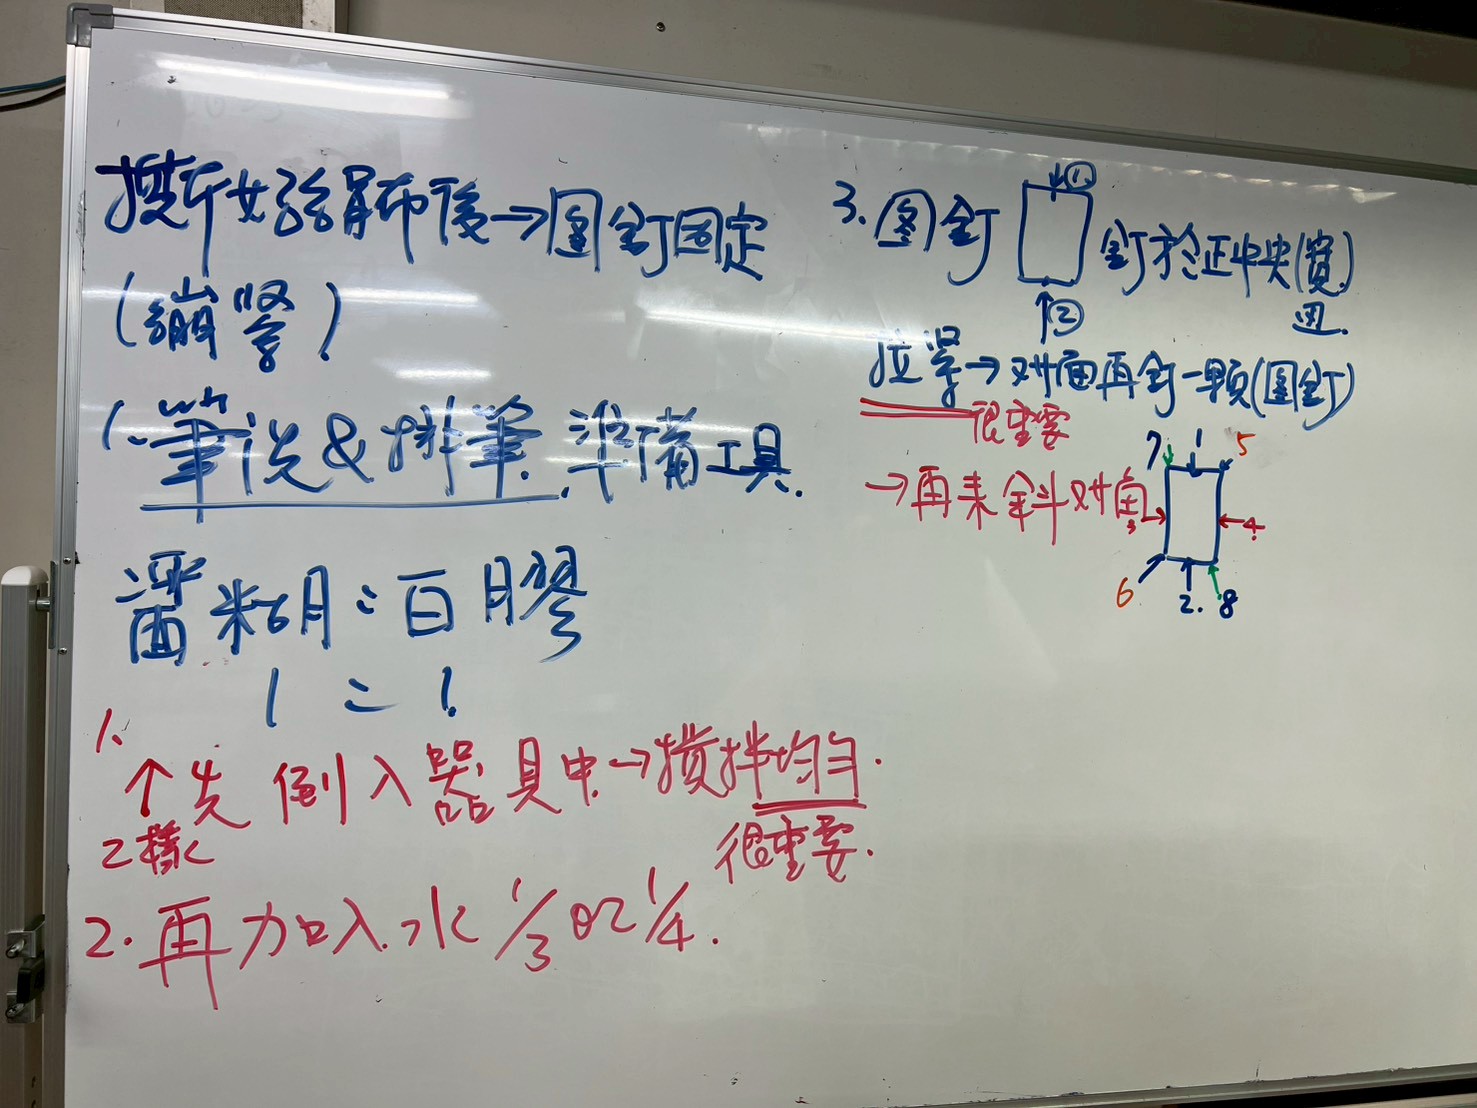 撕好絹布後→圖釘固定
(繃緊)
1.筆洗&排筆.準備工具.
漿糊:白膠
1:1.
1.
↑先倒入器具中→攪拌均勻.
2樣
很重要.
2.再加入水1/3 or 1/4.
3.圖釘
↓①
↑②
釘於正中央(寬.
邊.
拉緊→对面再釘一顆(圖釘)
很重要
→再來斜对角
7 1 5
3 4
6 2. 8